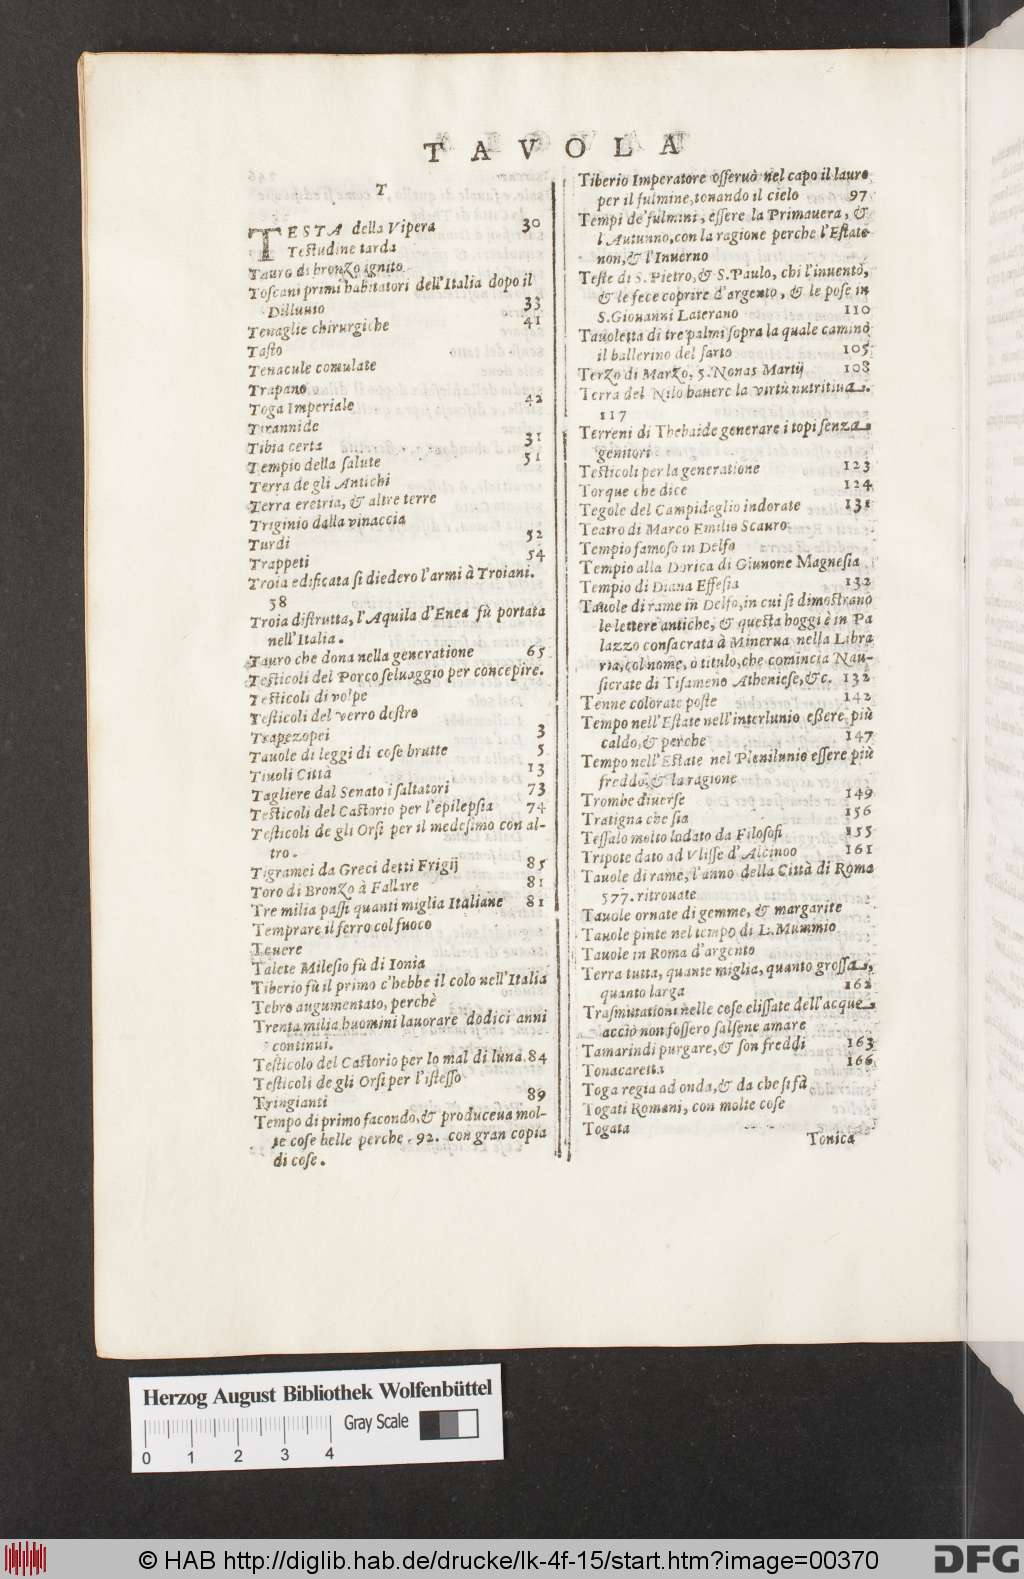 TAVOLA
T
TESTA della Vipera 30
Testudine tarda
Tauro di bronzo ignito
Toscani primi habitatori dell'Italia dopo il
Dilluuio 33
Tenaglie chirurgiche 41
Tasto
Tenacule comulate
Trapano
Toga Imperiale 42
Tirannide
Tibia certa 31
Tempio della salute 51
Terra de gli Antichi
Terra eretria, & altre terre
Triginio dalla vinaccia
Turdi 52
Trappeti 54
Troia edificata si diedero l'armi à Troiani.
38
Troia distrutta, l'Aquila d'Enea fù portata
nell'Italia.
Tauro che dona nella generatione 65
Testicoli del Porco seluaggio per concepire.
Testicoli di volpe
Testicoli del verro destro
Trapezopei 3
Tauole di leggi di cose brutte 5
Tiuoli Città 13
Tagliere dal Senato i saltatori 73
Testicoli del Castorio per l'epilepsia 74
Testicoli de gli Orsi per il medesimo con al-
tro.
Tigramei da Greci detti Frigij 85
Toro di Bronzo à Fallare 81
Tre milia passi quanti miglia Italiane 81
Temprare il ferro col fuoco
Teuere
Talete Milesio fù di Ionia
Tiberio fù il primo c'hebbe il colo nell'Italia
Tebro augumentato, perchè
Trenta milia huomini lauorare dodici anni
continui.
Testicolo del Castorio per lo mal di luna. 84
Testicoli de gli Orsi per l'istesso
Tringianti 89
Tempo di primo facondo, & produceua mol-
te cose belle perche. 92. con gran copia
di cose.
Tiberio Imperatore osseruò nel capo il lauro
per il fulmine, tonando il cielo 97
Tempi de' fulmini, essere la Primauera, &
l'Autunno, con la ragione perche l'Estate
non, & l'Inuerno
Teste di S. Pietro, & S. Paulo, chi l'inuentò,
& le fece coprire d'argento, & le pose in
S. Giouanni Laterano 110
Tauoletta di tre palmi sopra la quale caminò
il ballerino del sarto 105
Terzo di Marzo, 5. Nonas Martij 108
Terra del Nilo hauere la virtù nutritiua.
117
Terreni di Thebaide generare i topi senza
genitori
Testicoli per la generatione 123
Torque che dice 124
Tegole del Campidoglio indorate 131
Teatro di Marco Emilio Scauro
Tempio famoso in Delfo
Tempio alla Dorica di Giunone Magnesia
Tempio di Diana Effesia 132
Tauole di rame in Delfo, in cui si dimostrano
le lettere antiche, & questa hoggi è in Pa
lazzo consacrata à Minerua nella Libra
ria, col nome, o titulo, che comincia Nau-
sicrate di Tisameno Atheniese, &c. 132
Tenne colorate poste 142
Tempo nell'Estate nell'interlunio essere più
caldo, & perche 147
Tempo nell'Estate nel Plenilunio essere più
freddo, & la ragione
Trombe diuerse 149
Tratigna che sia 156
Tessalo molto lodato da Filosofi 155
Tripote dato ad Vlisse d'Alcinoo 161
Tauole di rame, l'anno della Città di Roma
577. ritrouate
Tauole ornate di gemme, & margarite
Tauole pinte nel tempo di L. Mummio
Tauole in Roma d'argento
Terra tutta, quante miglia, quanto grossa,
quanto larga 162
Trasmutationi nelle cose elissate dell'acque
acciò non fossero salsene amare
Tamarindi purgare, & son freddi 163
Tonacaretta 166
Toga regia ad onda, & da che si fà
Togati Romani, con molte cose
Togata
Tonica
Herzog August Bibliothek Wolfenbüttel
Gray Scale
0 1 2 3 4
© HAB http://diglib.hab.de/drucke/lk-4f-15/start.htm?image=00370
DFG